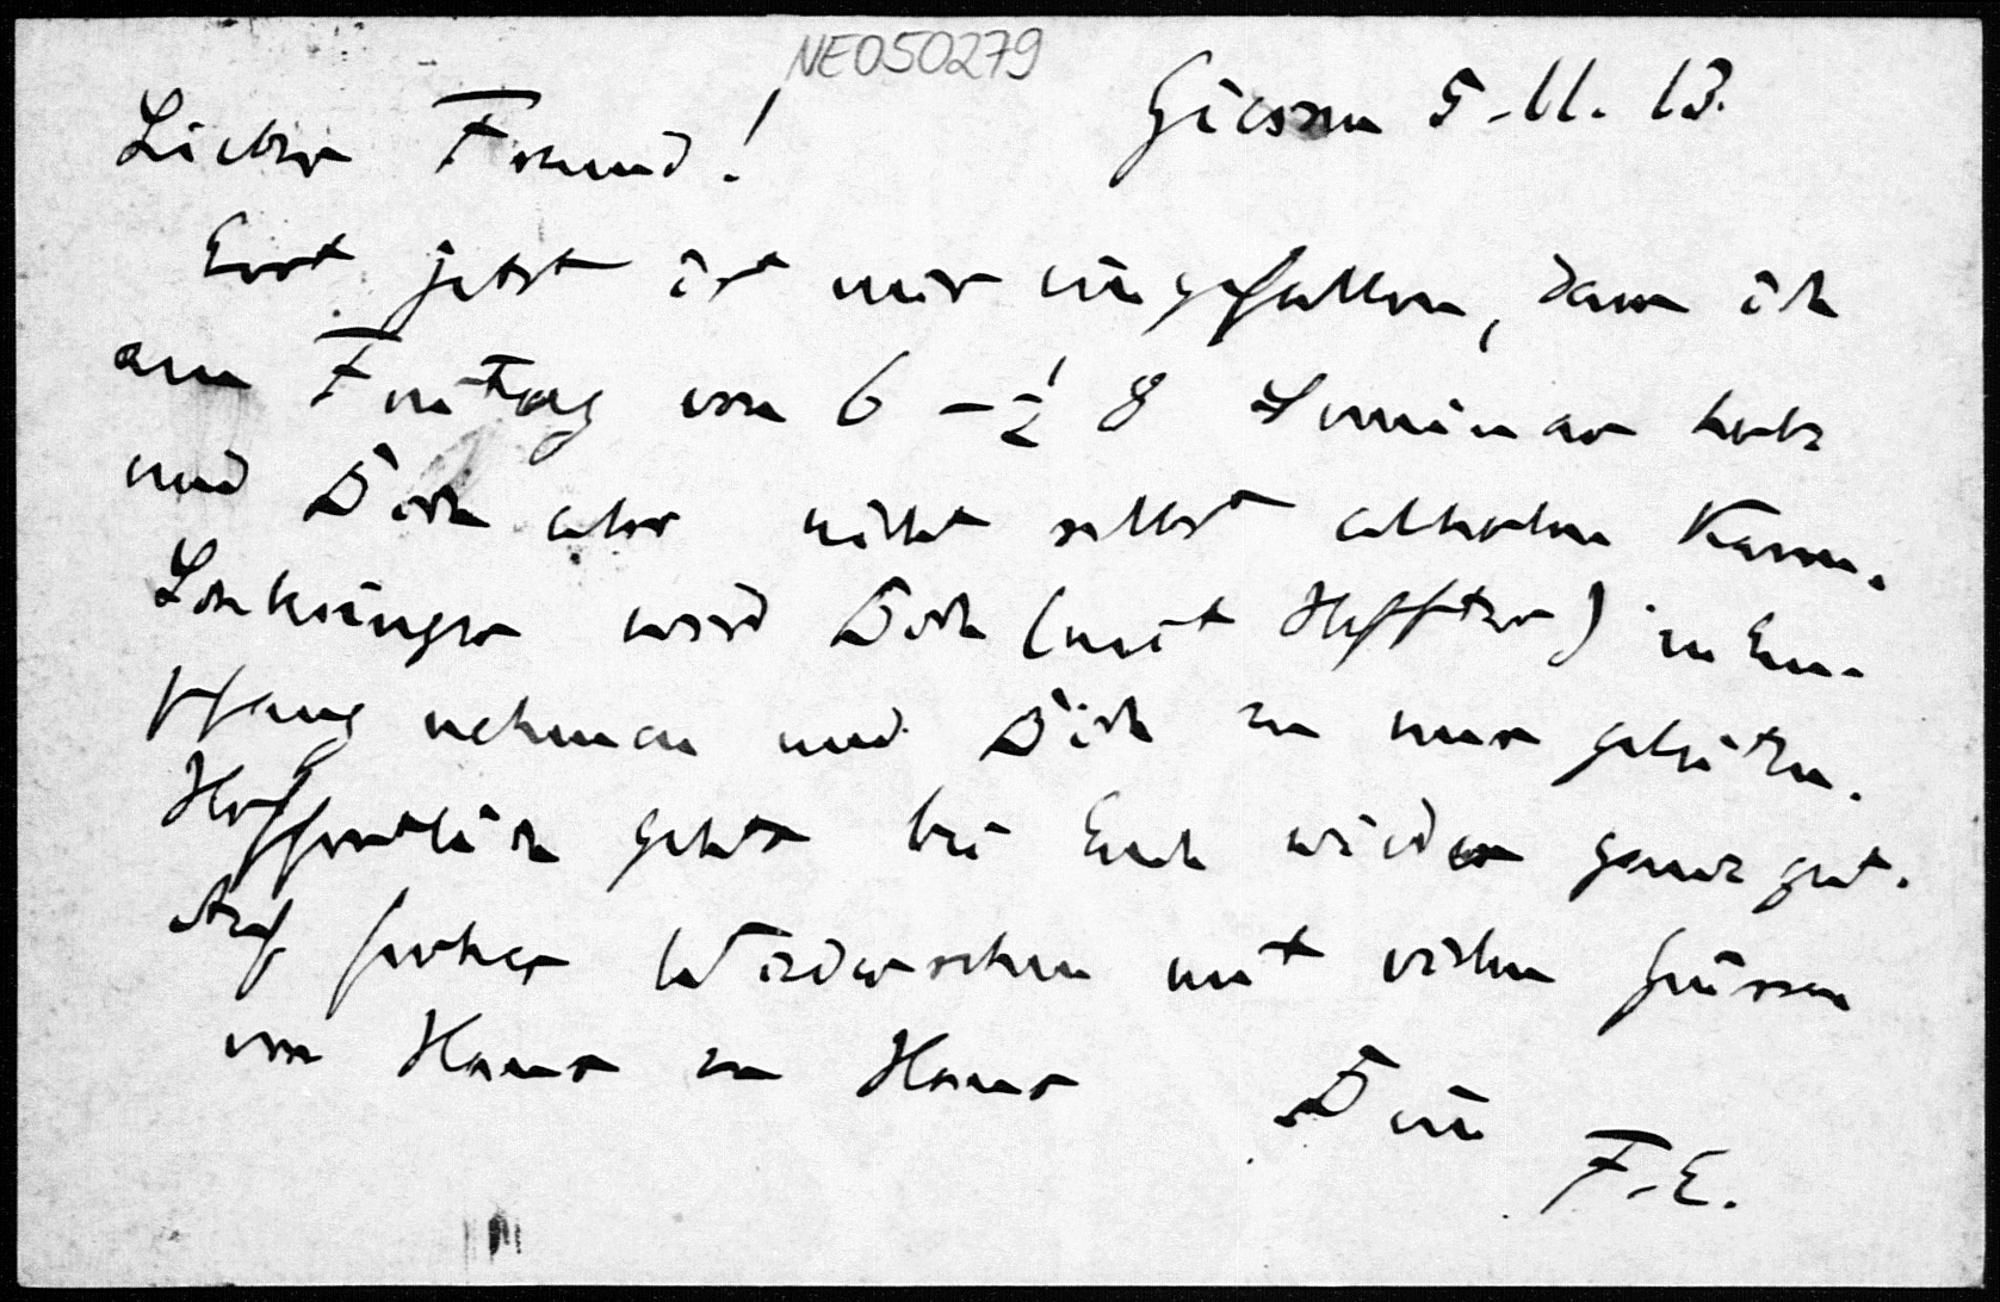 NE050279
Giessen 5.11.13.
Lieber Freund!
Erst jetzt ist mir eingefallen, dass ich
am Freitag von 6 - ½ 8 Seminar habe
und Dich also nicht selbst abholen kann.
wird Dich (mit Heffter) in Em-
pfang nehmen und Dich zu mir geleiten.
Hoffentlich geht's bei Euch wieder ganz gut.
Auf frohes Wiedersehen mit vielen Grüssen
von Haus zu Haus
Dein
F.E.